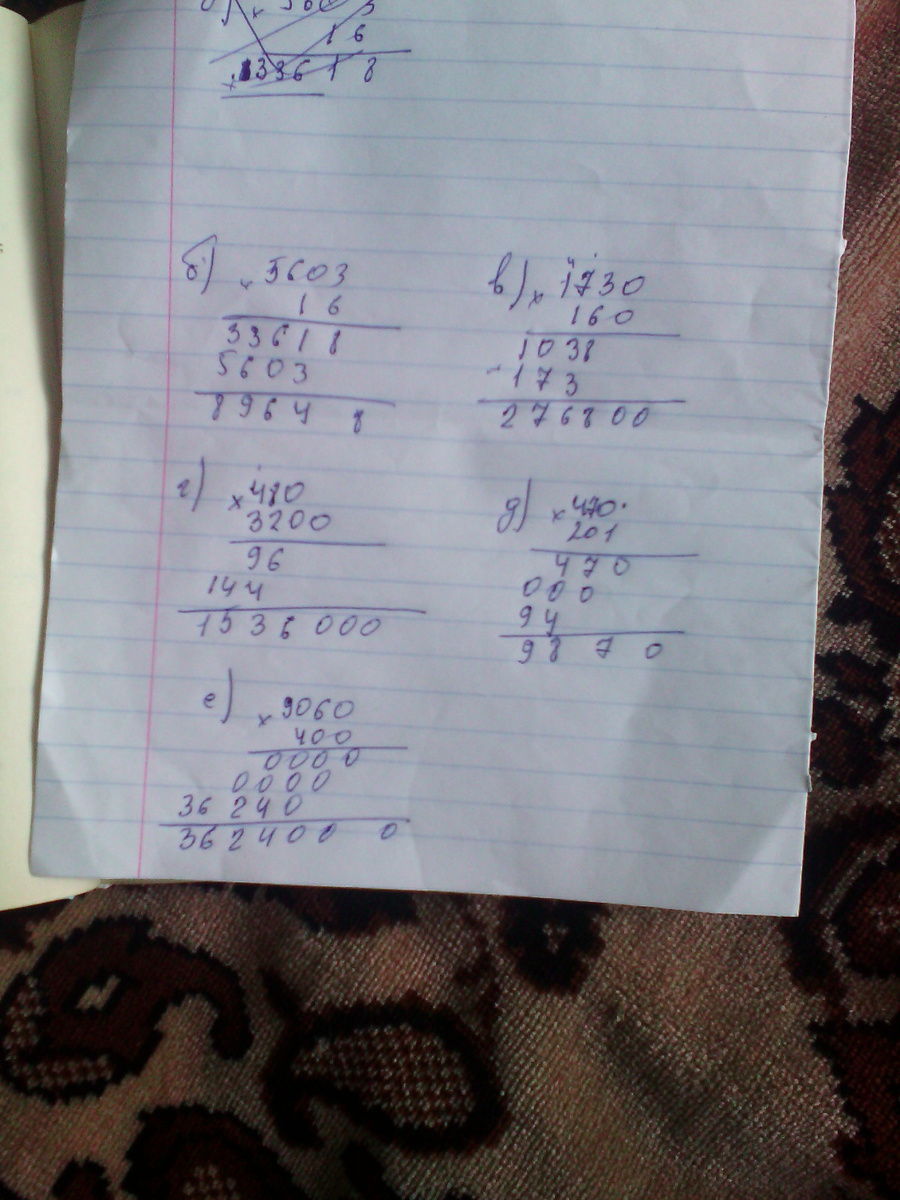 × 5603
16
33618
б) × 5603
16
33618
5603
8964 8
в) × 1730
160
1038
173
276800
г) × 480
3200
96
144
1536000
д) × 470
201
470
000
94
98 7 0
е) × 9060
400
0000
0000
36240
362400 0